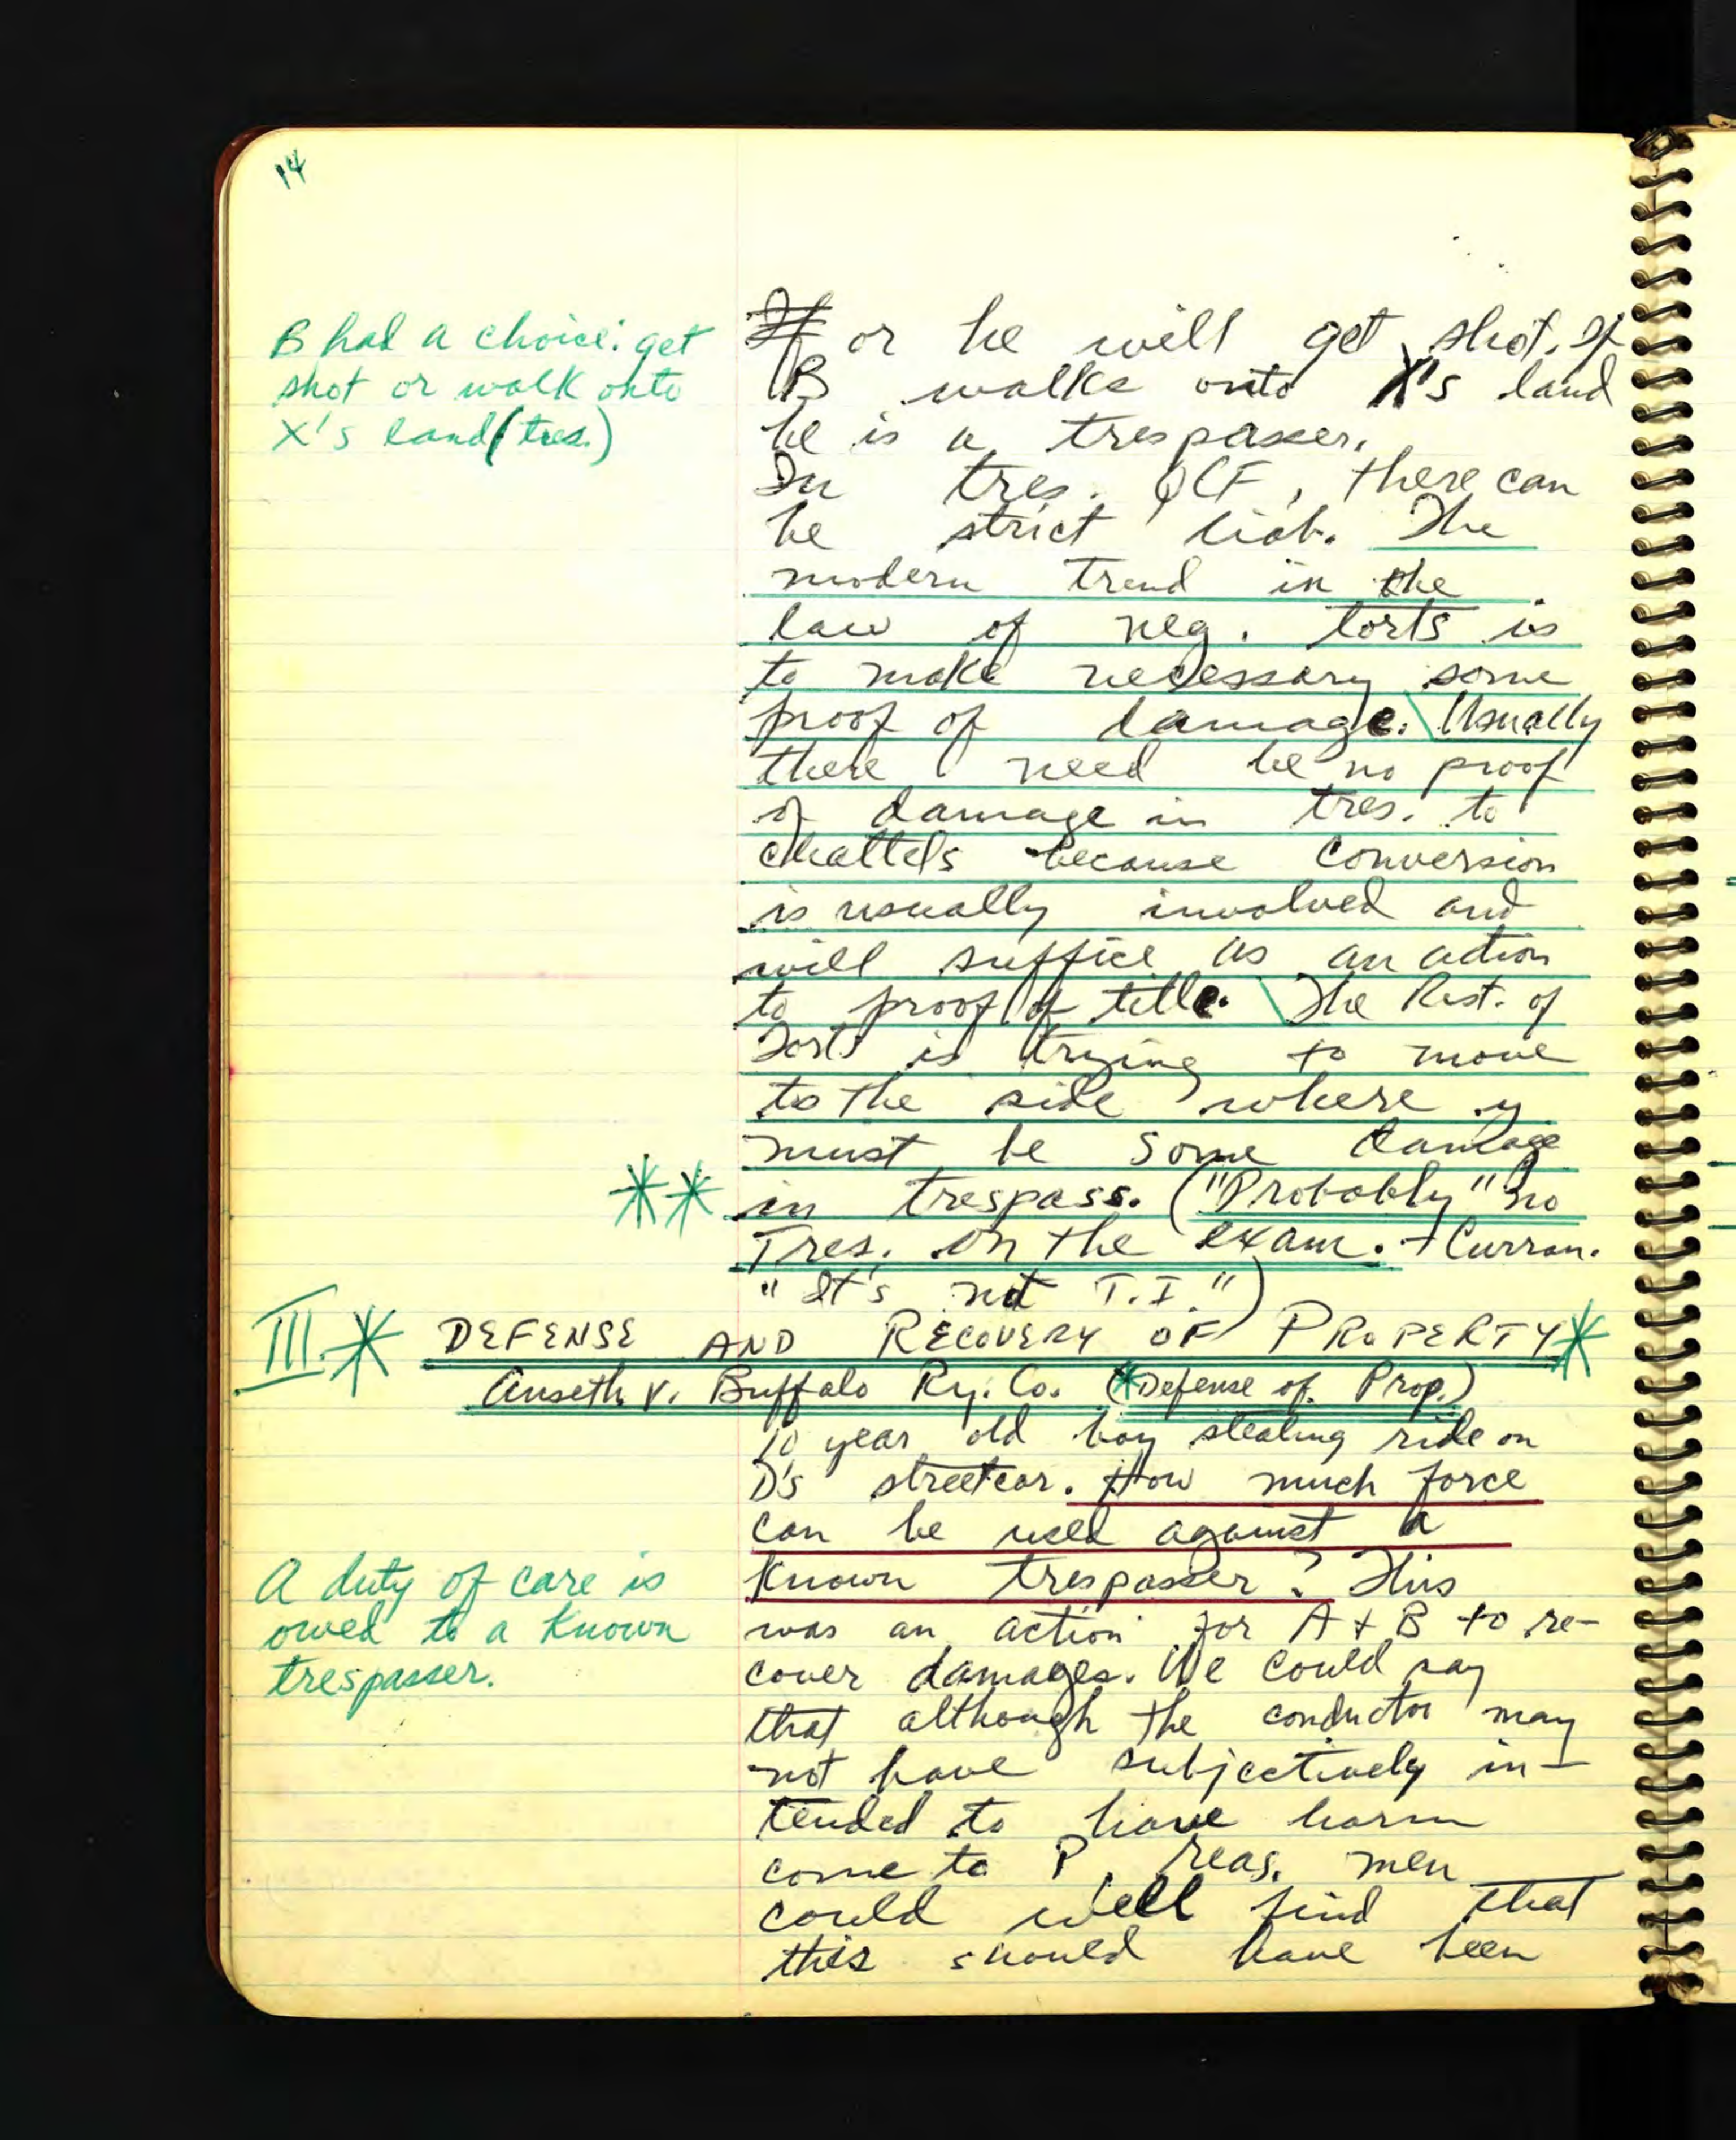 14
B had a choice: get
shot or walk onto
X's land (tres.)
If or he will get shot. If
B walks onto X's land
he is a trespasser.
In tres. QCF, there can
be strict liab. The
modern trend in the
law of neg. torts is
to make necessary some
proof of damage. Usually
there need be no proof
of damage in tres. to
chattels because conversion
is usually involved and
will suffice as an action
to proof of title. The Rest. of
Torts is trying to move
to the side where
must be some damage
** in trespass. ("Probably" no
Tres. on the exam. + Curran.
"It's not T.I.")
III.* DEFENSE AND RECOVERY OF PROPERTY*
Anseth v. Buffalo Ry. Co. (*Defense of Prop.)
10 year old boy stealing ride on
D's streetcar. How much force
can be used against a
known trespasser? This
was an action for A + B to re-
cover damages. We could say
that although the conductor may
not have subjectively in-
tended to have harm
come to P, reas. men
could well find that
this should have been
A duty of care is
owed to a known
trespasser.